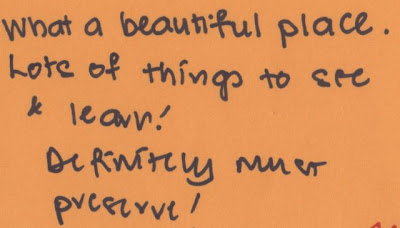 What a beautiful place.
Lots of things to see
& learn!
Definitely must
preserve!